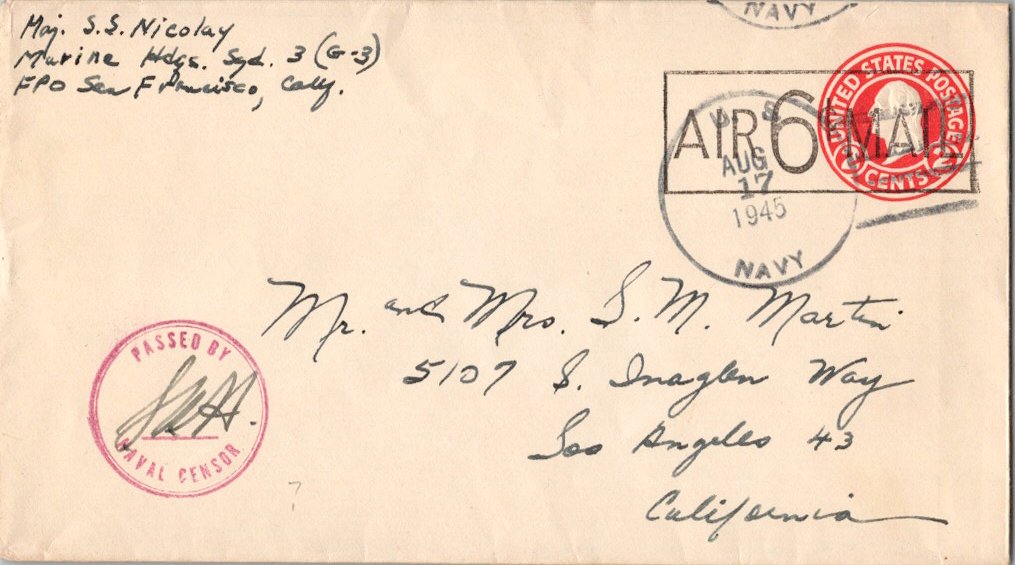 Maj. S.S. Nicolay
Marine Hdqs. Sqd. 3 (G-3)
FPO San Francisco, Calif.
NAVY
UNITED STATES POSTAGE
2 CENTS 2
AIR 6¢ MAIL
U. S.
AUG
17
1945
NAVY
Mr. and Mrs. S. M. Martin
5107 S. Way
Los Angeles 43
California
PASSED BY
NAVAL CENSOR